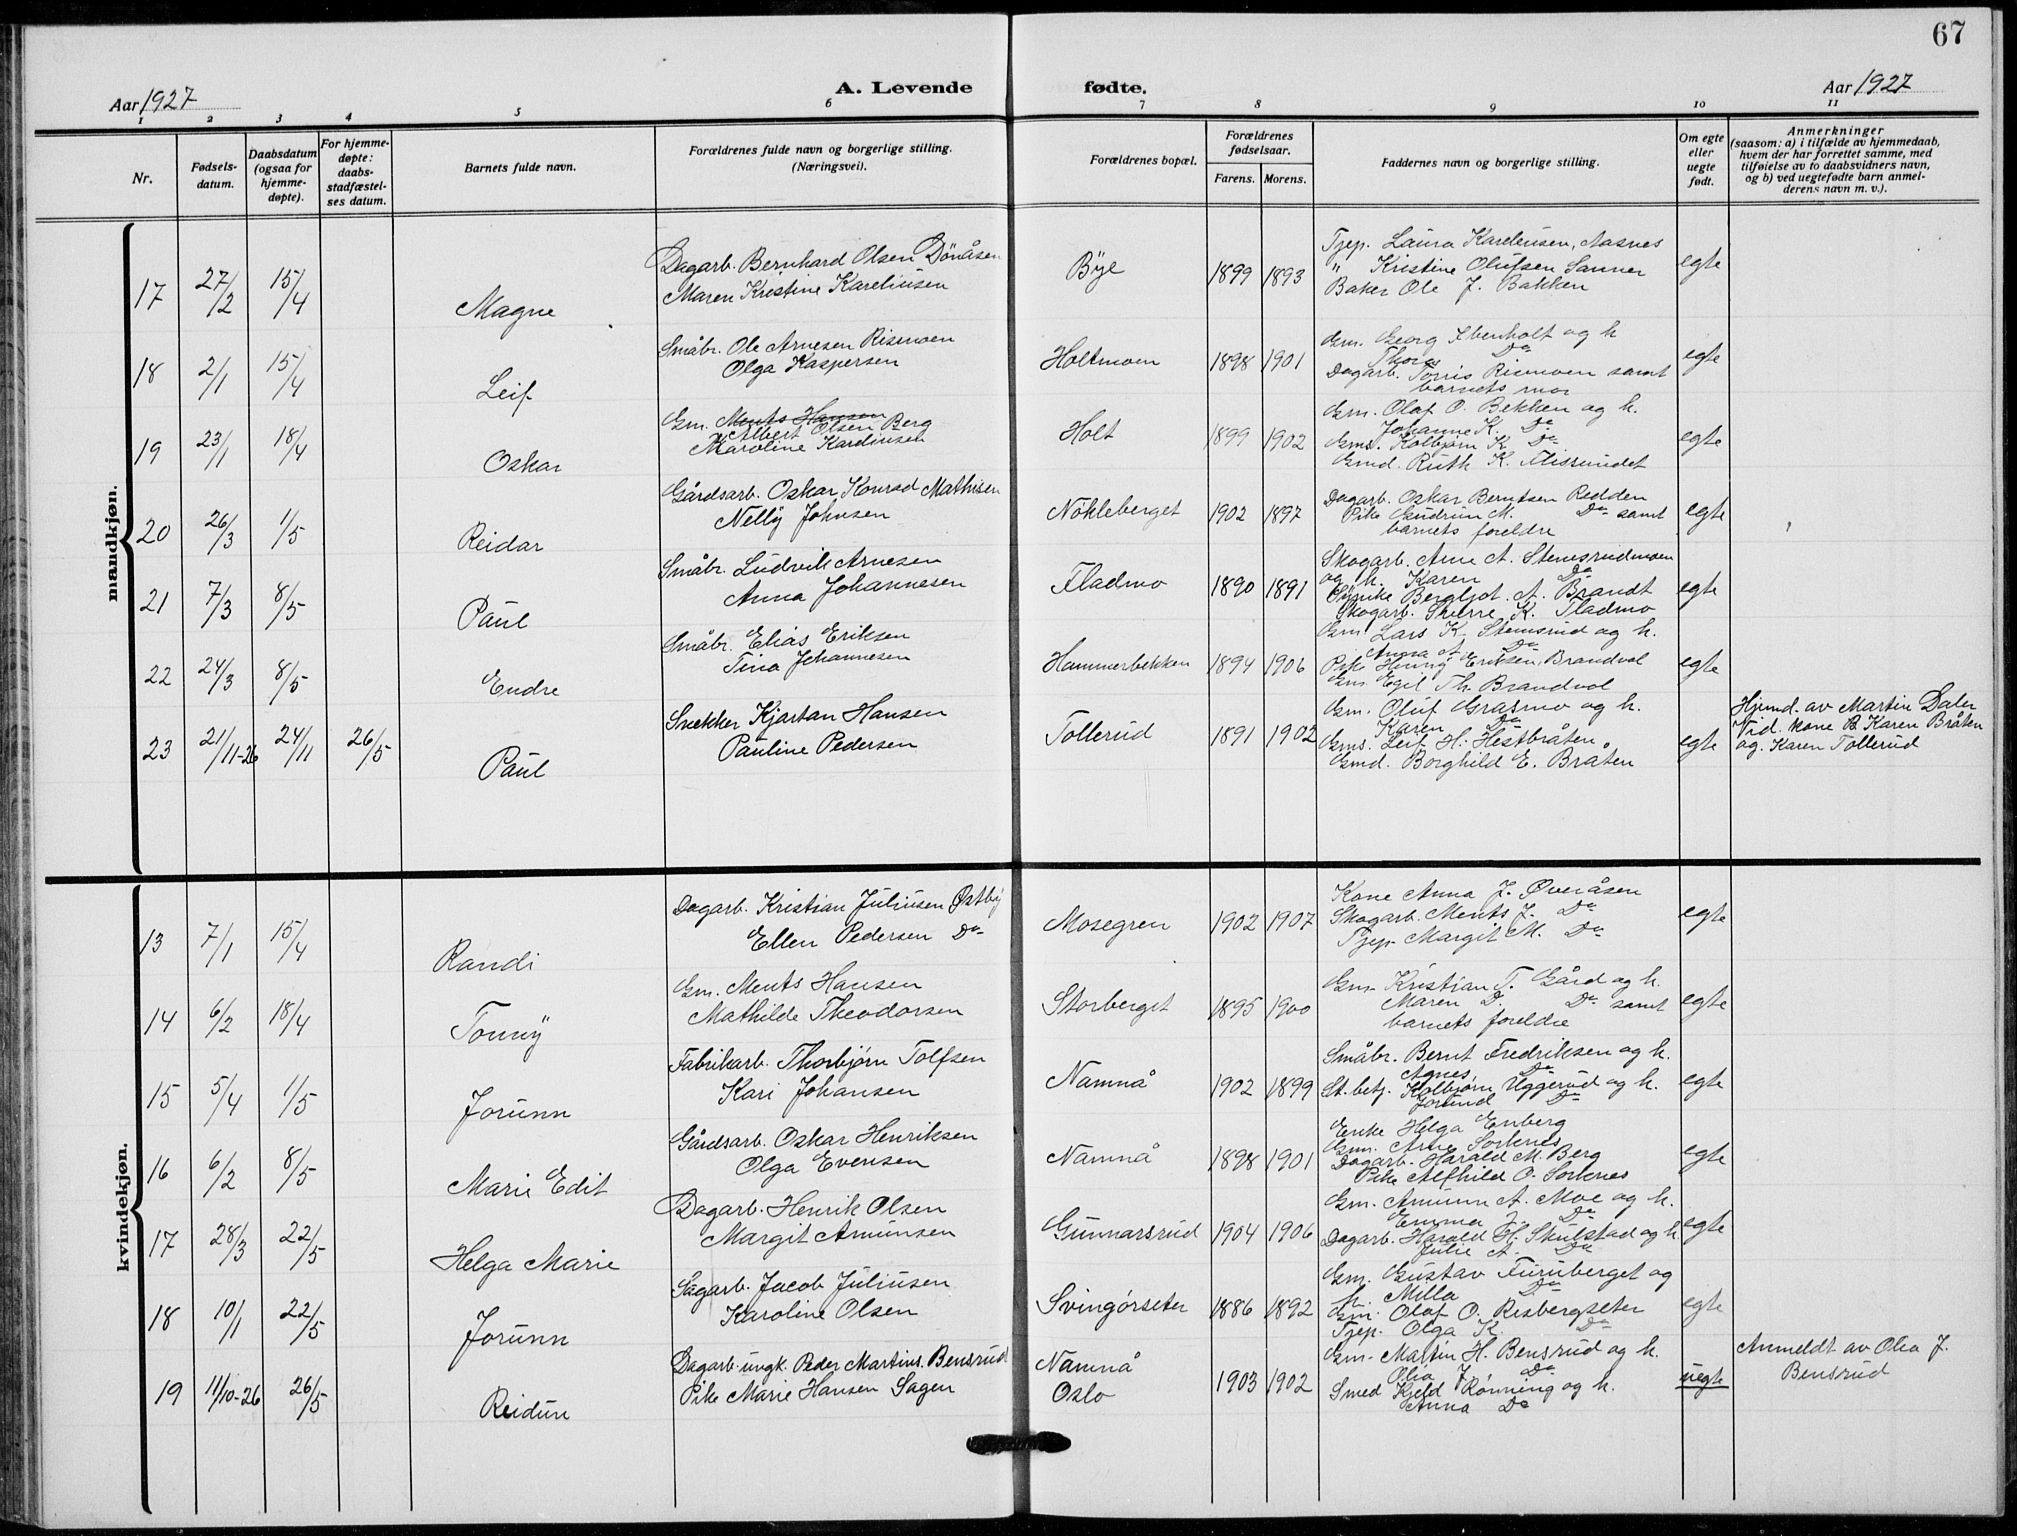 67
Aar 1927
A. Levende fødte.
Aar 1927
1 2 3 4 5 6 7 8 9 10 11
Nr.
Fødsels-
datum.
Daabsdatum
(ogsaa for
hjemme-
døpte).
For hjemme-
døpte:
daabs-
stadfæstel-
ses datum.
Barnets fulde navn.
Forældrenes fulde navn og borgerlige stilling.
(Næringsvei).
Forældrenes bopæl.
Forældrenes
fødselsaar.
Farens. Morens.
Faddernes navn og borgerlige stilling.
Om egte
eller
uegte
født.
Anmerkninger
(saasom: a) i tilfælde av hjemmedaab,
hvem der har forrettet samme, med
tilføielse av to daabsvidners navn,
og b) ved uegtefødte barn anmel-
derens navn m. v.).
mandkjøn.
17 27/2 15/4 Magne
Dagarb. Bernhard Olsen Dönåsen
Maren Kristine Kareliusen
Bye 1899 1893
Tjep. Laura Kareliusen, Aasnes
" Kristine Olufsen Sanner
Baker Ole J. Bakken
egte
18 2/1 15/4 Leif
Småbr. Ole Arnesen Rismoen
Olga Kaspersen
Holtmoen 1898 1901
Gm. Georg Ibenholt og h
Thora Do
Dagarb. Tönis Rismoen samt
barnets mor
egte
19 23/1 18/4 Oskar
Gm. Ments Hansen Berg
Albert Olsen
Karoline Kardinsen
Holt 1899 1902
Gm. Olaf O. Bekken og h.
Johanne K. Do
Gms. Kolbjørn K. Do
Gmd. Ruth K. Flisrundet
egte
20 26/3 1/5 Reidar
Gårdsarb. Oskar Konrad Mathisen
Nelly Johnsen
Nökleberget 1902 1897
Dagarb. Oskar Berntsen Redden
Pike Gudrun M. Do samt
barnets foreldre
egte
21 7/3 8/5 Paul
Småbr. Ludvik Arnesen
Anna Johannesen
Fladmo 1890 1891
Skogarb. Arne A. Stemsrudmoen
og h. Karen Do
Bergljot A. Brandt
Skogarb. Sverre K. Fladmo
egte
22 24/3 8/5 Endre
Småbr. Elias Eriksen
Tina Johannesen
Hammerbekken 1894 1906
Gm. Lars K. Stemsrud og h.
Anna A. Do
Pike Henny Eriksen, Brandvol
Gm. Egil Th. Brandvol
egte
23 21/11-26 24/11 26/5 Paul
Snekker Kjartan Hansen
Pauline Pedersen
Tollerud 1891 1902
Gm. Oluf Grasmo og h.
Karen Do
Gms. Leif H. Hestbråten
Gmd. Borghild E. Bråten
egte
Hjemd. av Martin Daler
Vid. kone B Karen Bråten
og Karen Tollerud
kvindekjøn.
13 7/1 15/4 Randi
Dagarb. Kristian Juliusen Østby
Ellen Pedersen Do
Mosegren 1902 1907
Kone Anna J. Øveråsen
Skogarb. Ments J. Do
Tjep. Margit M. Do
egte
14 6/2 18/4 Tonny
Gm. Ments Hansen
Mathilde Theodorsen
Storberget 1895 1900
Gm. Kristian T. Gård og h.
Maren D. Do samt
barnets foreldre
egte
15 5/4 1/5 Jorunn
Fabrikarb. Thorbjørn Tolfsen
Kari Johansen
Namnå 1902 1899
Småbr. Bernt Fredriksen og h.
Agnes Do
St. betj. Kolbjørn Uggerud og h.
Jorund Do
egte
16 6/2 8/5 Marie Edit
Gårdsarb. Oskar Henriksen
Olga Evensen
Namnå 1898 1901
Enke Helga Enberg
Gm. Arne Sorknes
Dagarb. Harald M. Berg
Pike Alfhild O. Sorknes
egte
17 28/3 22/5 Helga Marie
Dagarb. Henrik Olsen
Margit Amunsen
Gunnarsrud 1904 1906
Gm. Amunn A. Moe og h.
Emma J. Do
Dagarb. Harald H. Skulstad og h
Julie A. Do
egte
18 10/1 22/5 Jorunn
Sagarb. Jacob Juliusen
Karoline Olsen
Svingörseter 1886 1892
Gm. Gustav Furuberget og
h. Milla Do
Gm. Olaf O. Risbergseter
Tjep. Olga K. Do
egte
19 11/10-26 26/5 Reidun
Dagarb. ungk. Peder Martins. Bensrud
Pike Marie Hansen Sagen
Namnå
Oslo
1903 1902
Gm. Martin H. Bensrud og h.
Olea J. Do
Smed Kjeld Rønning og h.
Anna Do
uegte
Anmeldt av Olea J.
Bensrud